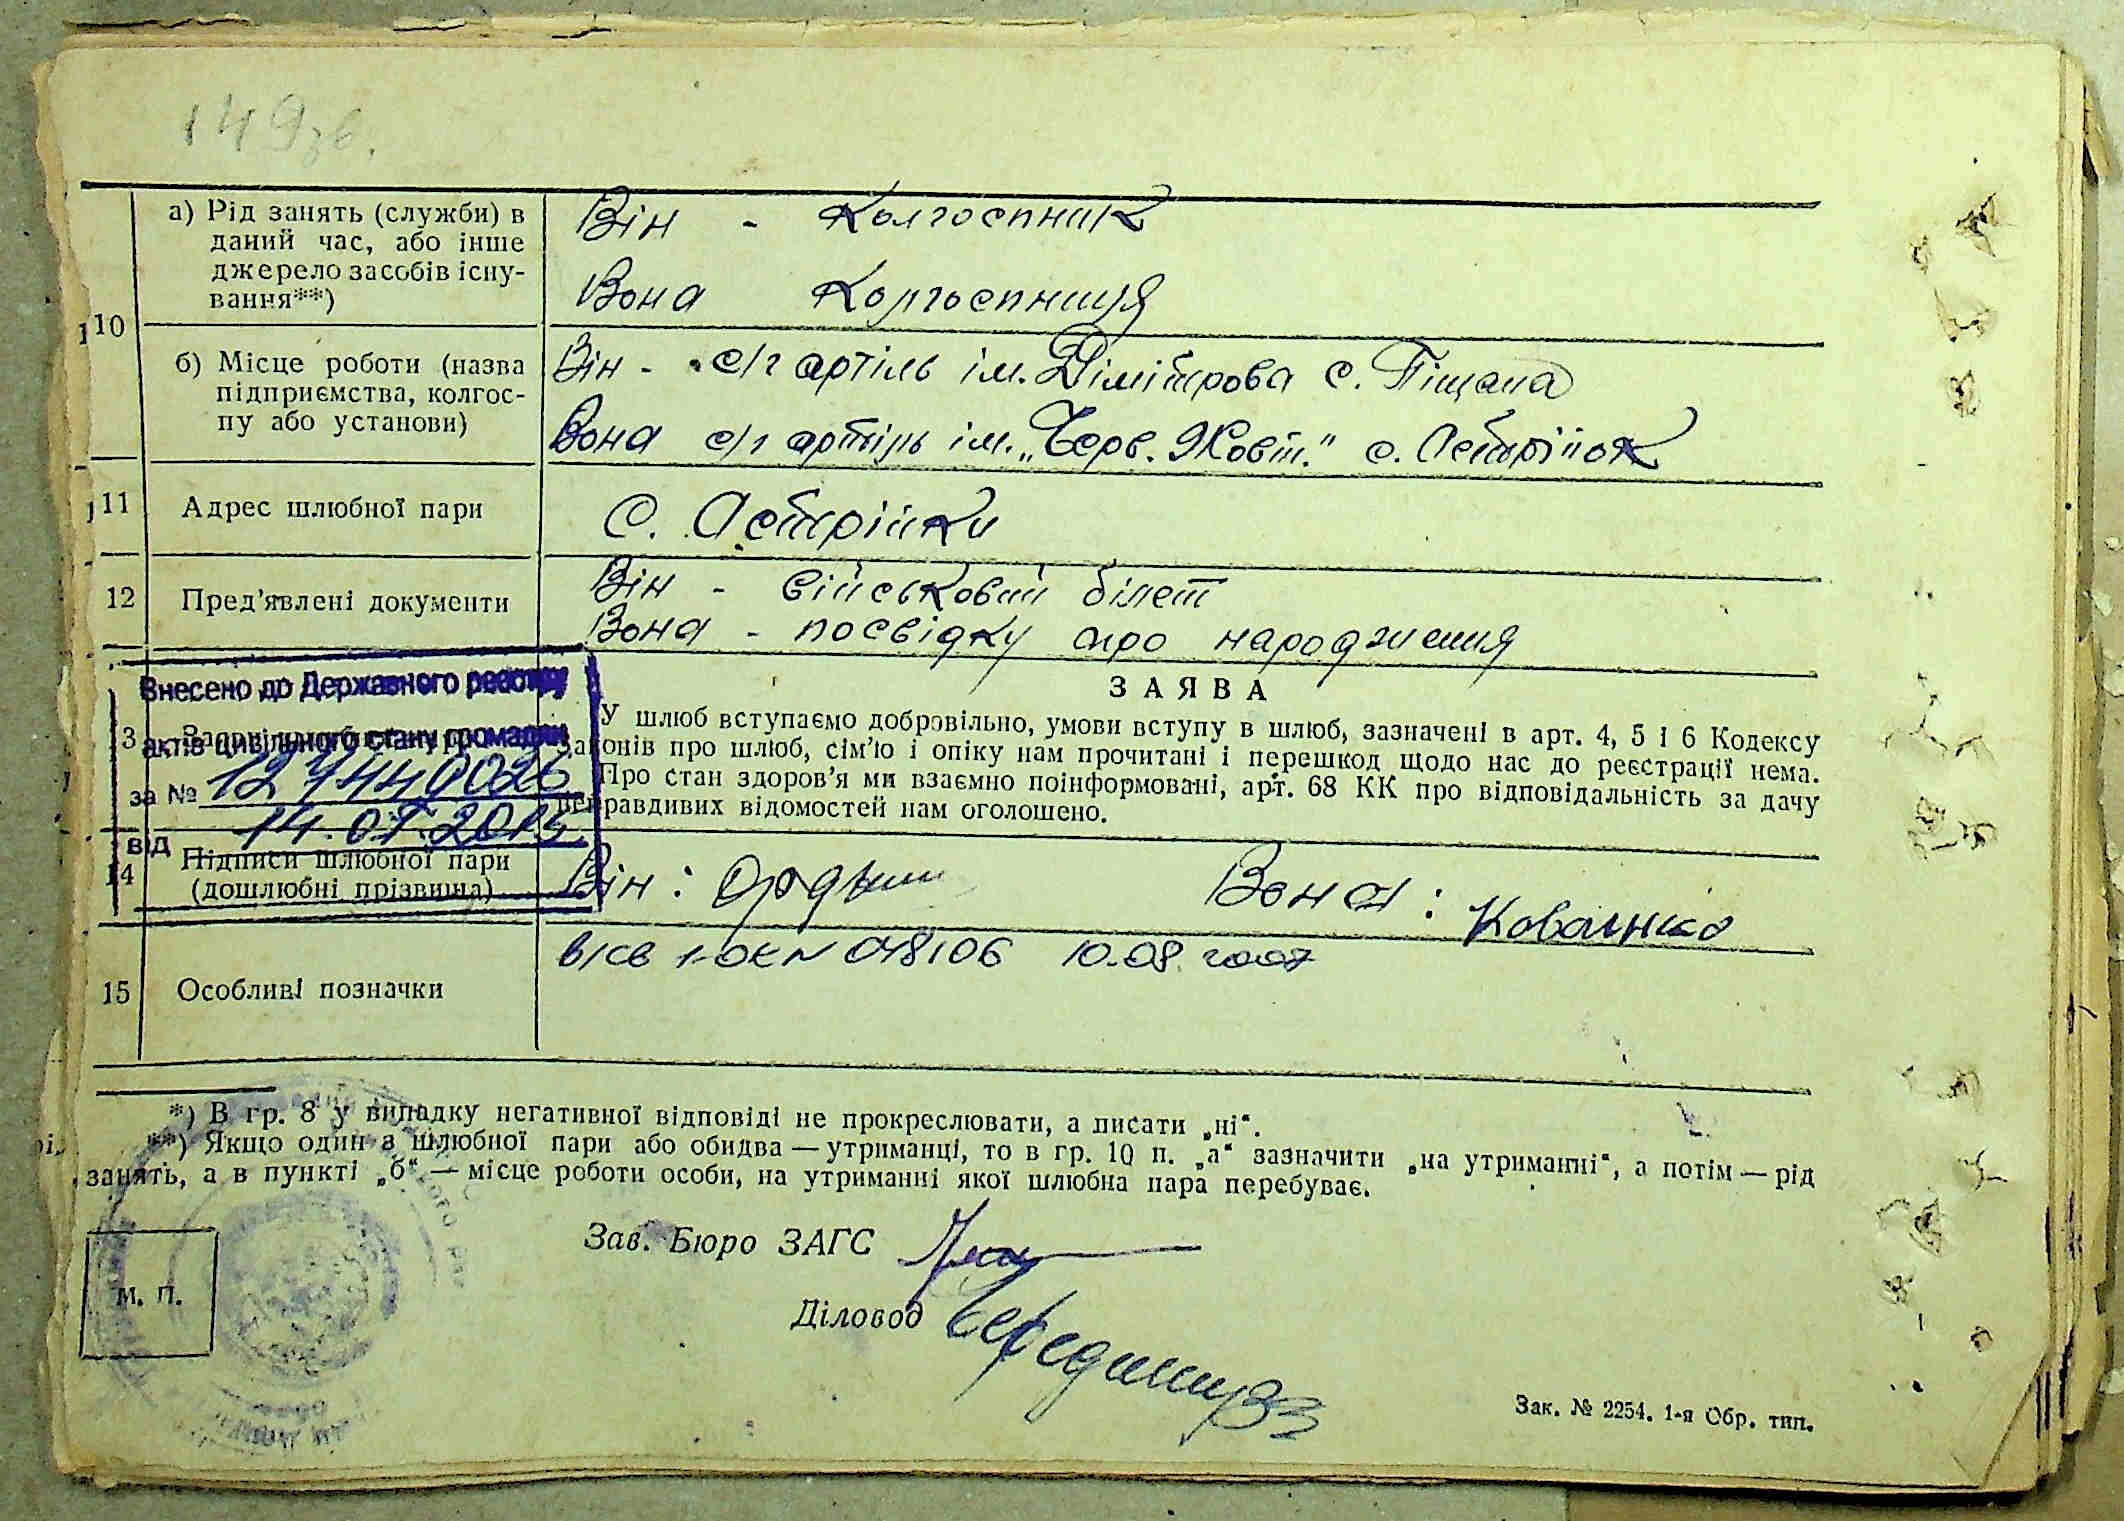 149зв.
а) Рід занять (служби) в
даний час, або інше
джерело засобів існу-
вання**)
Він - Колгоспник
Вона Колгоспниця
10
б) Місце роботи (назва
підприємства, колгос-
пу або установи)
Він - с/г артіль ім. Дімітрова с. Піщана
Вона с/г артіль ім. „Черв. Жовт." с.
11
Адрес шлюбної пари
С.
12
Пред'явлені документи
Він - військовий білет
Вона - посвідку про народження
Внесено до Державного реєстру
актів цивільного стану громадян
за №
від
ЗАЯВА
У шлюб вступаємо добровільно, умови вступу в шлюб, зазначені в арт. 4, 5 і 6 Кодексу
Законів про шлюб, сім'ю і опіку нам прочитані і перешкод щодо нас до реєстрації нема.
Про стан здоров'я ми взаємно поінформовані, арт. 68 КК про відповідальність за дачу
неправдивих відомостей нам оголошено.
14
Підписи шлюбної пари
(дошлюбні прізвища)
Він: Вона:
15
Особливі позначки
048106 10.08.2007
*) В гр. 8 у випадку негативної відповіді не прокреслювати, а писати „ні“.
**) Якщо один з шлюбної пари або обидва — утриманці, то в гр. 10 п. „а“ зазначити „на утриманні“, а потім — рід
занять, а в пункті „б“ — місце роботи особи, на утриманні якої шлюбна пара перебуває.
Зав. Бюро ЗАГС
Діловод
м. п.
Зак. № 2254. 1-я Обр. тип.